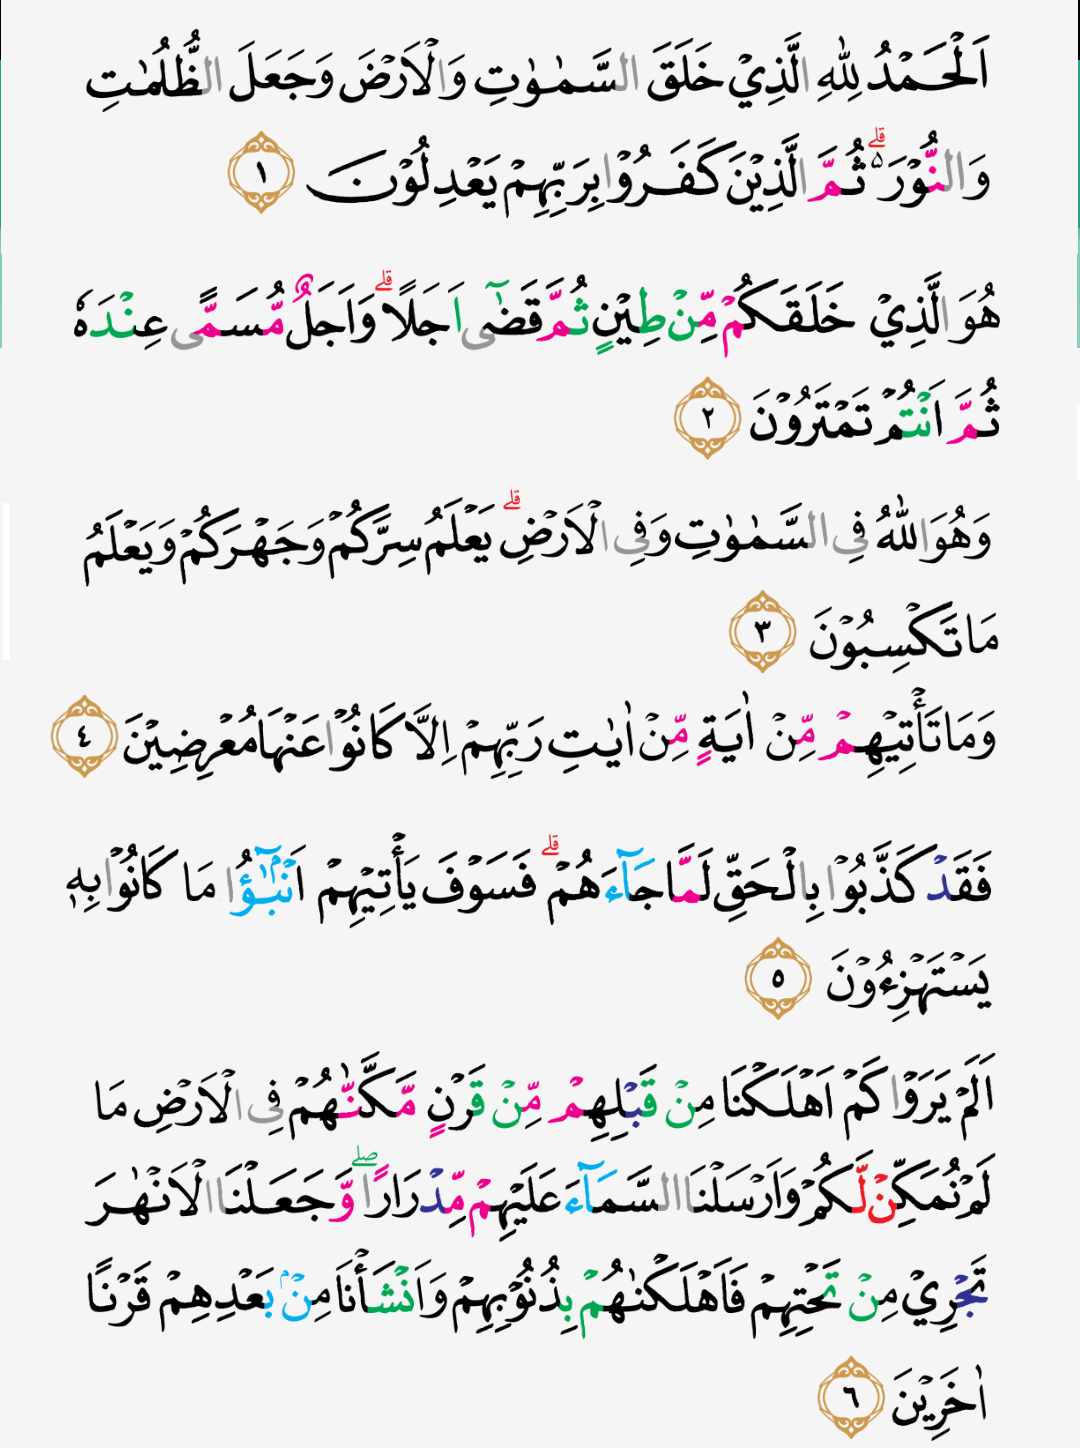 اَلْحَمْدُ لِلّٰهِ الَّذِيْ خَلَقَ السَّمٰوٰتِ وَالْاَرْضَ وَجَعَلَ الظُّلُمٰتِ
وَالنُّوْرَ ۗ ثُمَّ الَّذِيْنَ كَفَرُوْا بِرَبِّهِمْ يَعْدِلُوْنَ ١
هُوَ الَّذِيْ خَلَقَكُمْ مِّنْ طِيْنٍ ثُمَّ قَضٰٓى اَجَلًا ۗ وَاَجَلٌ مُّسَمًّى عِنْدَهٗ
ثُمَّ اَنْتُمْ تَمْتَرُوْنَ ٢
وَهُوَ اللّٰهُ فِى السَّمٰوٰتِ وَفِى الْاَرْضِ ۗ يَعْلَمُ سِرَّكُمْ وَجَهْرَكُمْ وَيَعْلَمُ
مَا تَكْسِبُوْنَ ٣
وَمَا تَأْتِيْهِمْ مِّنْ اٰيَةٍ مِّنْ اٰيٰتِ رَبِّهِمْ اِلَّا كَانُوْا عَنْهَا مُعْرِضِيْنَ ٤
فَقَدْ كَذَّبُوْا بِالْحَقِّ لَمَّا جَاۤءَهُمْ ۗ فَسَوْفَ يَأْتِيْهِمْ اَنْۢبٰۤؤُا مَا كَانُوْا بِهٖ
يَسْتَهْزِءُوْنَ ٥
اَلَمْ يَرَوْا كَمْ اَهْلَكْنَا مِنْ قَبْلِهِمْ مِّنْ قَرْنٍ مَّكَّنّٰهُمْ فِى الْاَرْضِ مَا
لَمْ نُمَكِّنْ لَّكُمْ وَاَرْسَلْنَا السَّمَاۤءَ عَلَيْهِمْ مِّدْرَارًا ۖ وَّجَعَلْنَا الْاَنْهٰرَ
تَجْرِيْ مِنْ تَحْتِهِمْ فَاَهْلَكْنٰهُمْ بِذُنُوْبِهِمْ وَاَنْشَأْنَا مِنْۢ بَعْدِهِمْ قَرْنًا
اٰخَرِيْنَ ٦